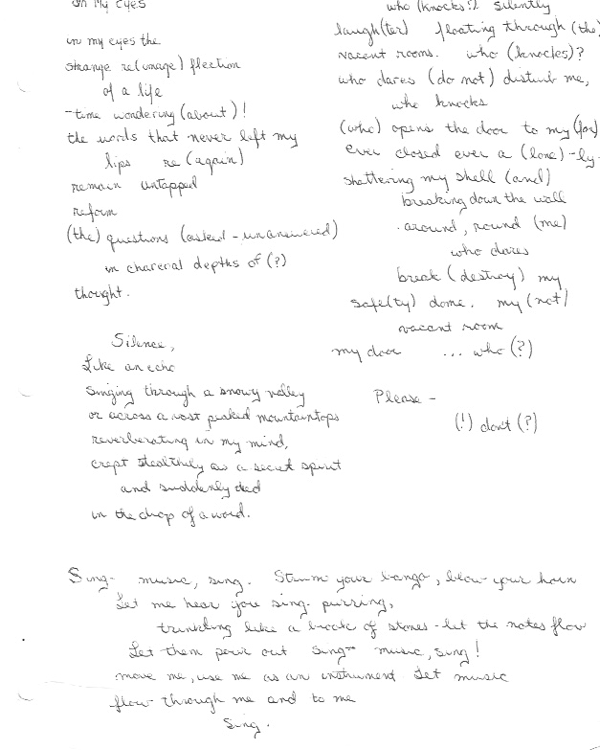 in My Eyes
in my eyes the
strange re(image) flection
of a life
-time wondering (about)!
the words that never left my
lips re (again)
remain untapped
reform
(the) questions (asked - unanswered)
in charcoal depths of (?)
thought.
Silence,
Like an echo
Singing through a snowy valley
or across a vast peaked mountaintops
reverberating in my mind,
crept stealthily as a secret spirit
and suddenly died
in the drop of a word.
who (knocks?) silently
laugh(ter) floating through (the)
vacant rooms. who (knocks)?
who dares (do not) disturb me,
who knocks
(who) opens the door to my (for)
ever closed ever a (lone)-ly-
shattering my shell (and)
breaking down the wall
around, round (me)
who dares
break (destroy) my
safe(ty) dome. my (not)
vacant room
my door ... who (?)
Please -
(!) don't (?)
Sing- music, sing. Strum your banjo, blow your horn
Let me hear you sing- purring,
trinkling like a brook of stones - let the notes flow
Let them pour out Sing- music, sing!
move me, use me as an instrument Let music
flow through me and to me
Sing.